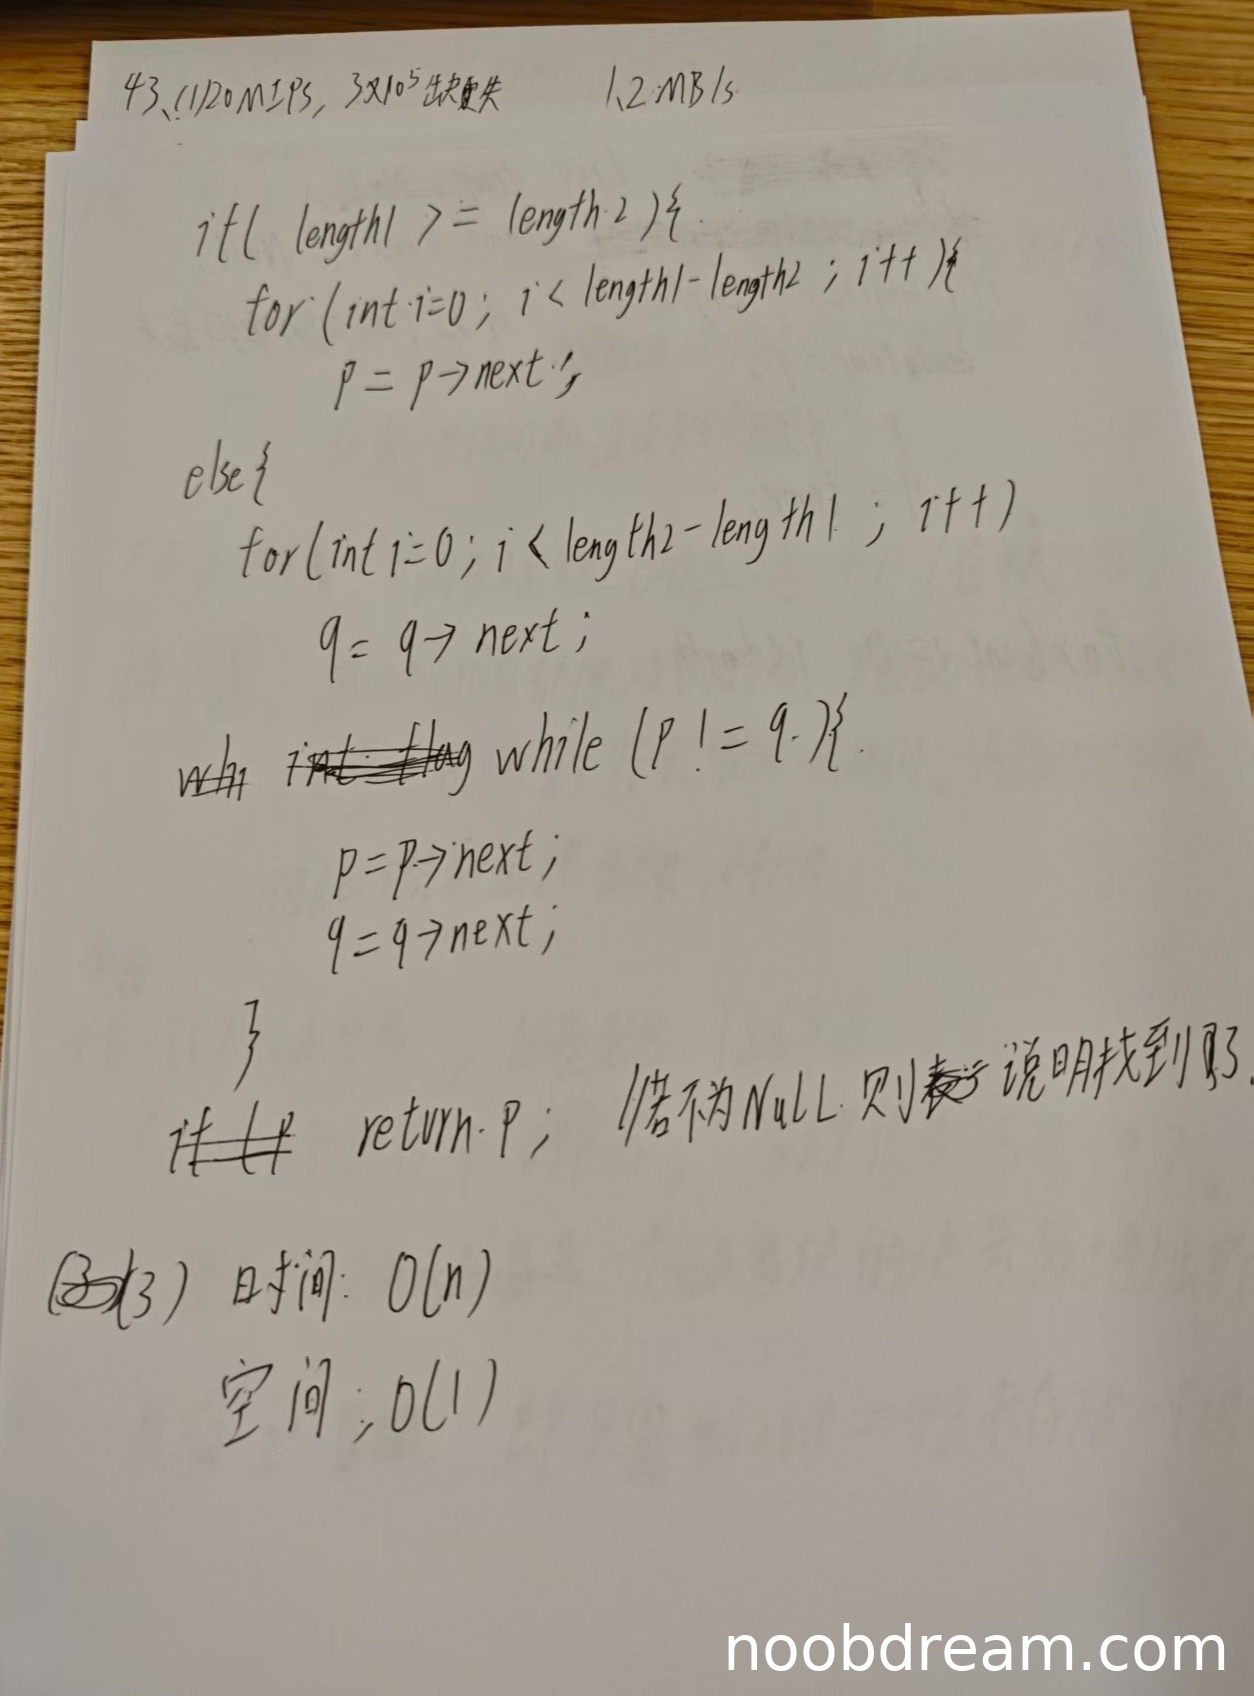 43、(1)20MIPS, 3×10⁵ 缺失 1.2MB/s
if( length1 >= length2 ){
for (int i=0; i< length1-length2 ; i++ ){
p = p->next;
else{
for(int i=0; i < length2-length1 ; i++)
q = q-> next;
whi int flag while (p != q){
p=p->next;
q=q->next;
}
if (p return p; //若不为NULL 则 说明找到
(3) 时间: O(n)
空间: O(1)
noobdream.com